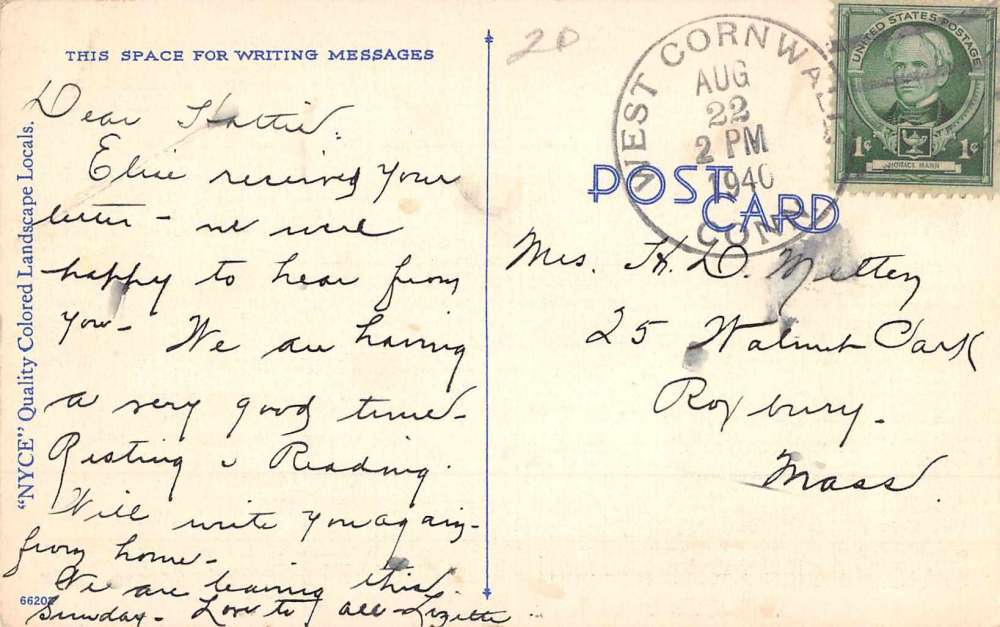 THIS SPACE FOR WRITING MESSAGES
Dear Hattie:
Elise received your
letter – we were
happy to hear from
you – We are having
a very good time –
Resting & Reading.
Will write you again –
from home –
We are leaving this
Sunday – Love to all – Lizette
"NYCE" Quality Colored Landscape Locals.
6620
20
WEST CORNWALL
AUG
22
2 PM
1940
CONN
UNITED STATES POSTAGE
1¢ 1¢
HORACE MANN
POST CARD
Mrs. H. D.
25 Walnut Park
Roxbury –
Mass.